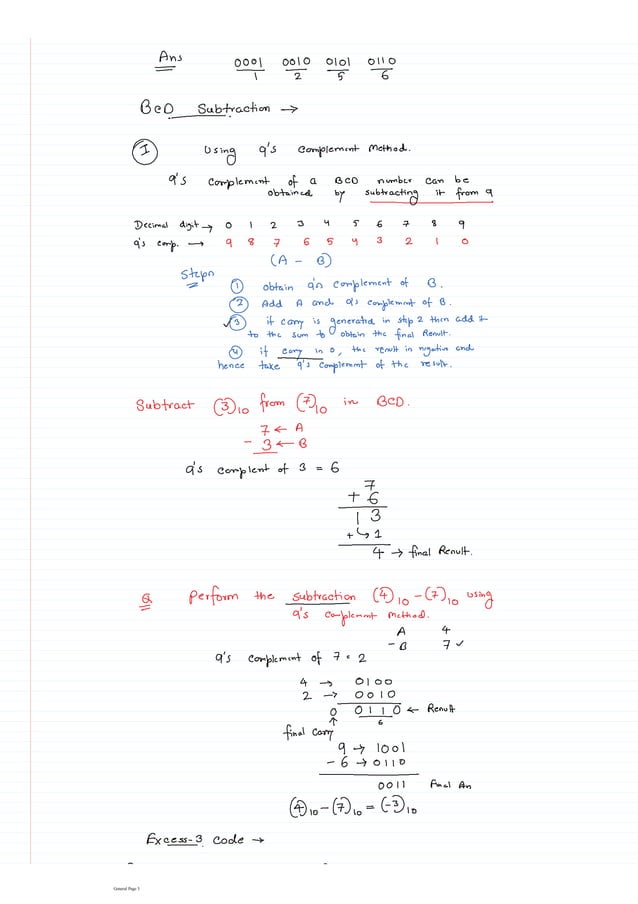 Ans 0001 0010 0101 0110
1 2 5 6
BCD Subtraction →
I Using 9's Complement Method.
9's Complement of a BCD number can be
obtained by subtracting it from 9
Decimal digit → 0 1 2 3 4 5 6 7 8 9
9's comp. → 9 8 7 6 5 4 3 2 1 0
(A - B)
Steps
1 obtain 9's complement of B.
2 Add A and 9's complement of B.
✓3 if carry is generated in step 2 then add it
to the sum to obtain the final Result.
4 if carry is 0, the result is negative and
hence take 9's complement of the result.
Subtract (3)10 from (7)10 in BCD.
7 ← A
- 3 ← B
9's complent of 3 = 6
7
+ 6
1 3
+ ↳ 1
4 → final Result.
Q Perform the subtraction (4)10 - (7)10 using
9's complement method.
A 4
- B 7 ✓
9's complement of 7 = 2
4 → 0100
2 → 0010
0 0110 ← Result
↑ 6
final Carry
9 → 1001
- 6 → 0110
0011 Final An
(4)10 - (7)10 = (-3)10
Excess-3 Code →
General Page 3